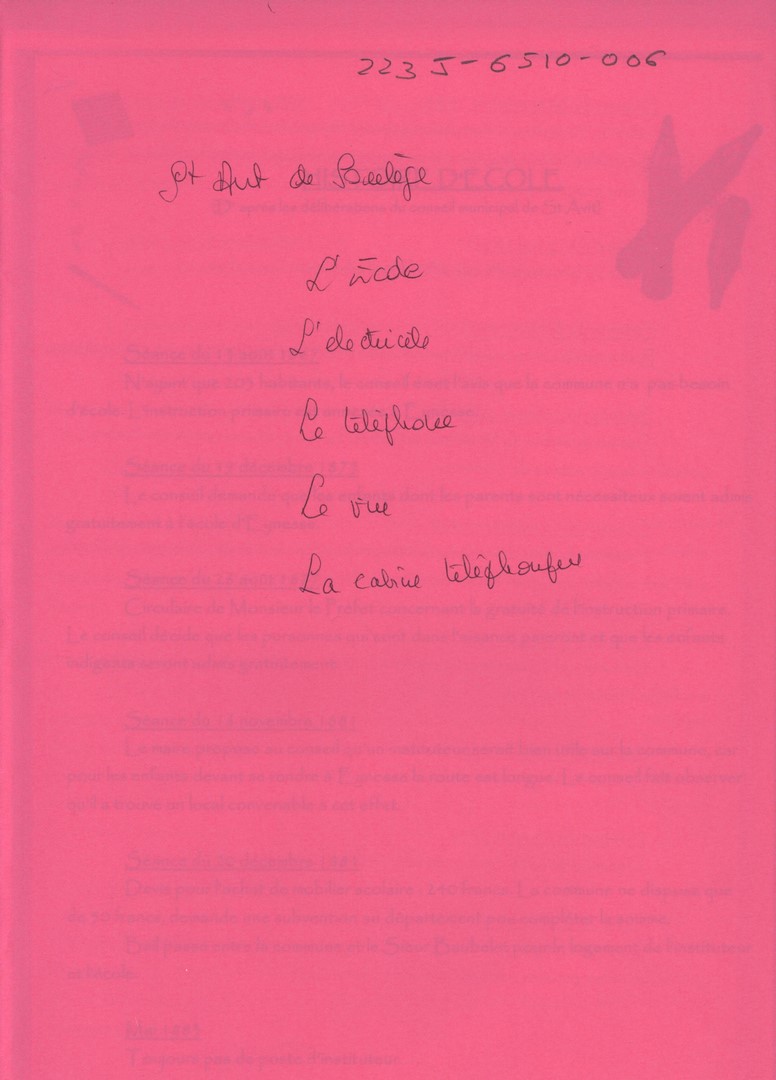 223 J-6510-006
St Avit de Soulège
D'ÉCOLE
(D'après les délibérations du conseil municipal de St Avit)
L'École
L'électricité
Séance du
N'ayant que 203 habitants, le conseil émet l'avis que la commune n'a pas besoin
d'école. L'instruction primaire
Le téléphone
Séance du 19 décembre 1875
Le conseil demande que les enfants dont les parents sont nécessiteux soient admis
gratuitement à l'école d'Eynesse.
Le vin
La cabine téléphonique
Séance du
Circulaire de Monsieur le Préfet concernant la gratuité de l'instruction primaire.
Le conseil décide que les personnes qui sont dans l'aisance paieront et que les enfants
indigents seront admis gratuitement.
Séance du 11 novembre 1881
Le maire propose au conseil qu'un instituteur serait bien utile sur la commune, car
pour les enfants devant se rendre à Eynesse la route est longue. Le conseil fait observer
qu'il a trouvé un local convenable à cet effet.
Séance du décembre 1881
Devis pour l'achat de mobilier scolaire : 240 francs. La commune ne dispose que
de 50 francs, demande une subvention au département pour compléter la somme.
Bail passé entre la commune et le Sieur pour le logement de l'instituteur
et l'école.
Toujours pas de poste d'instituteur